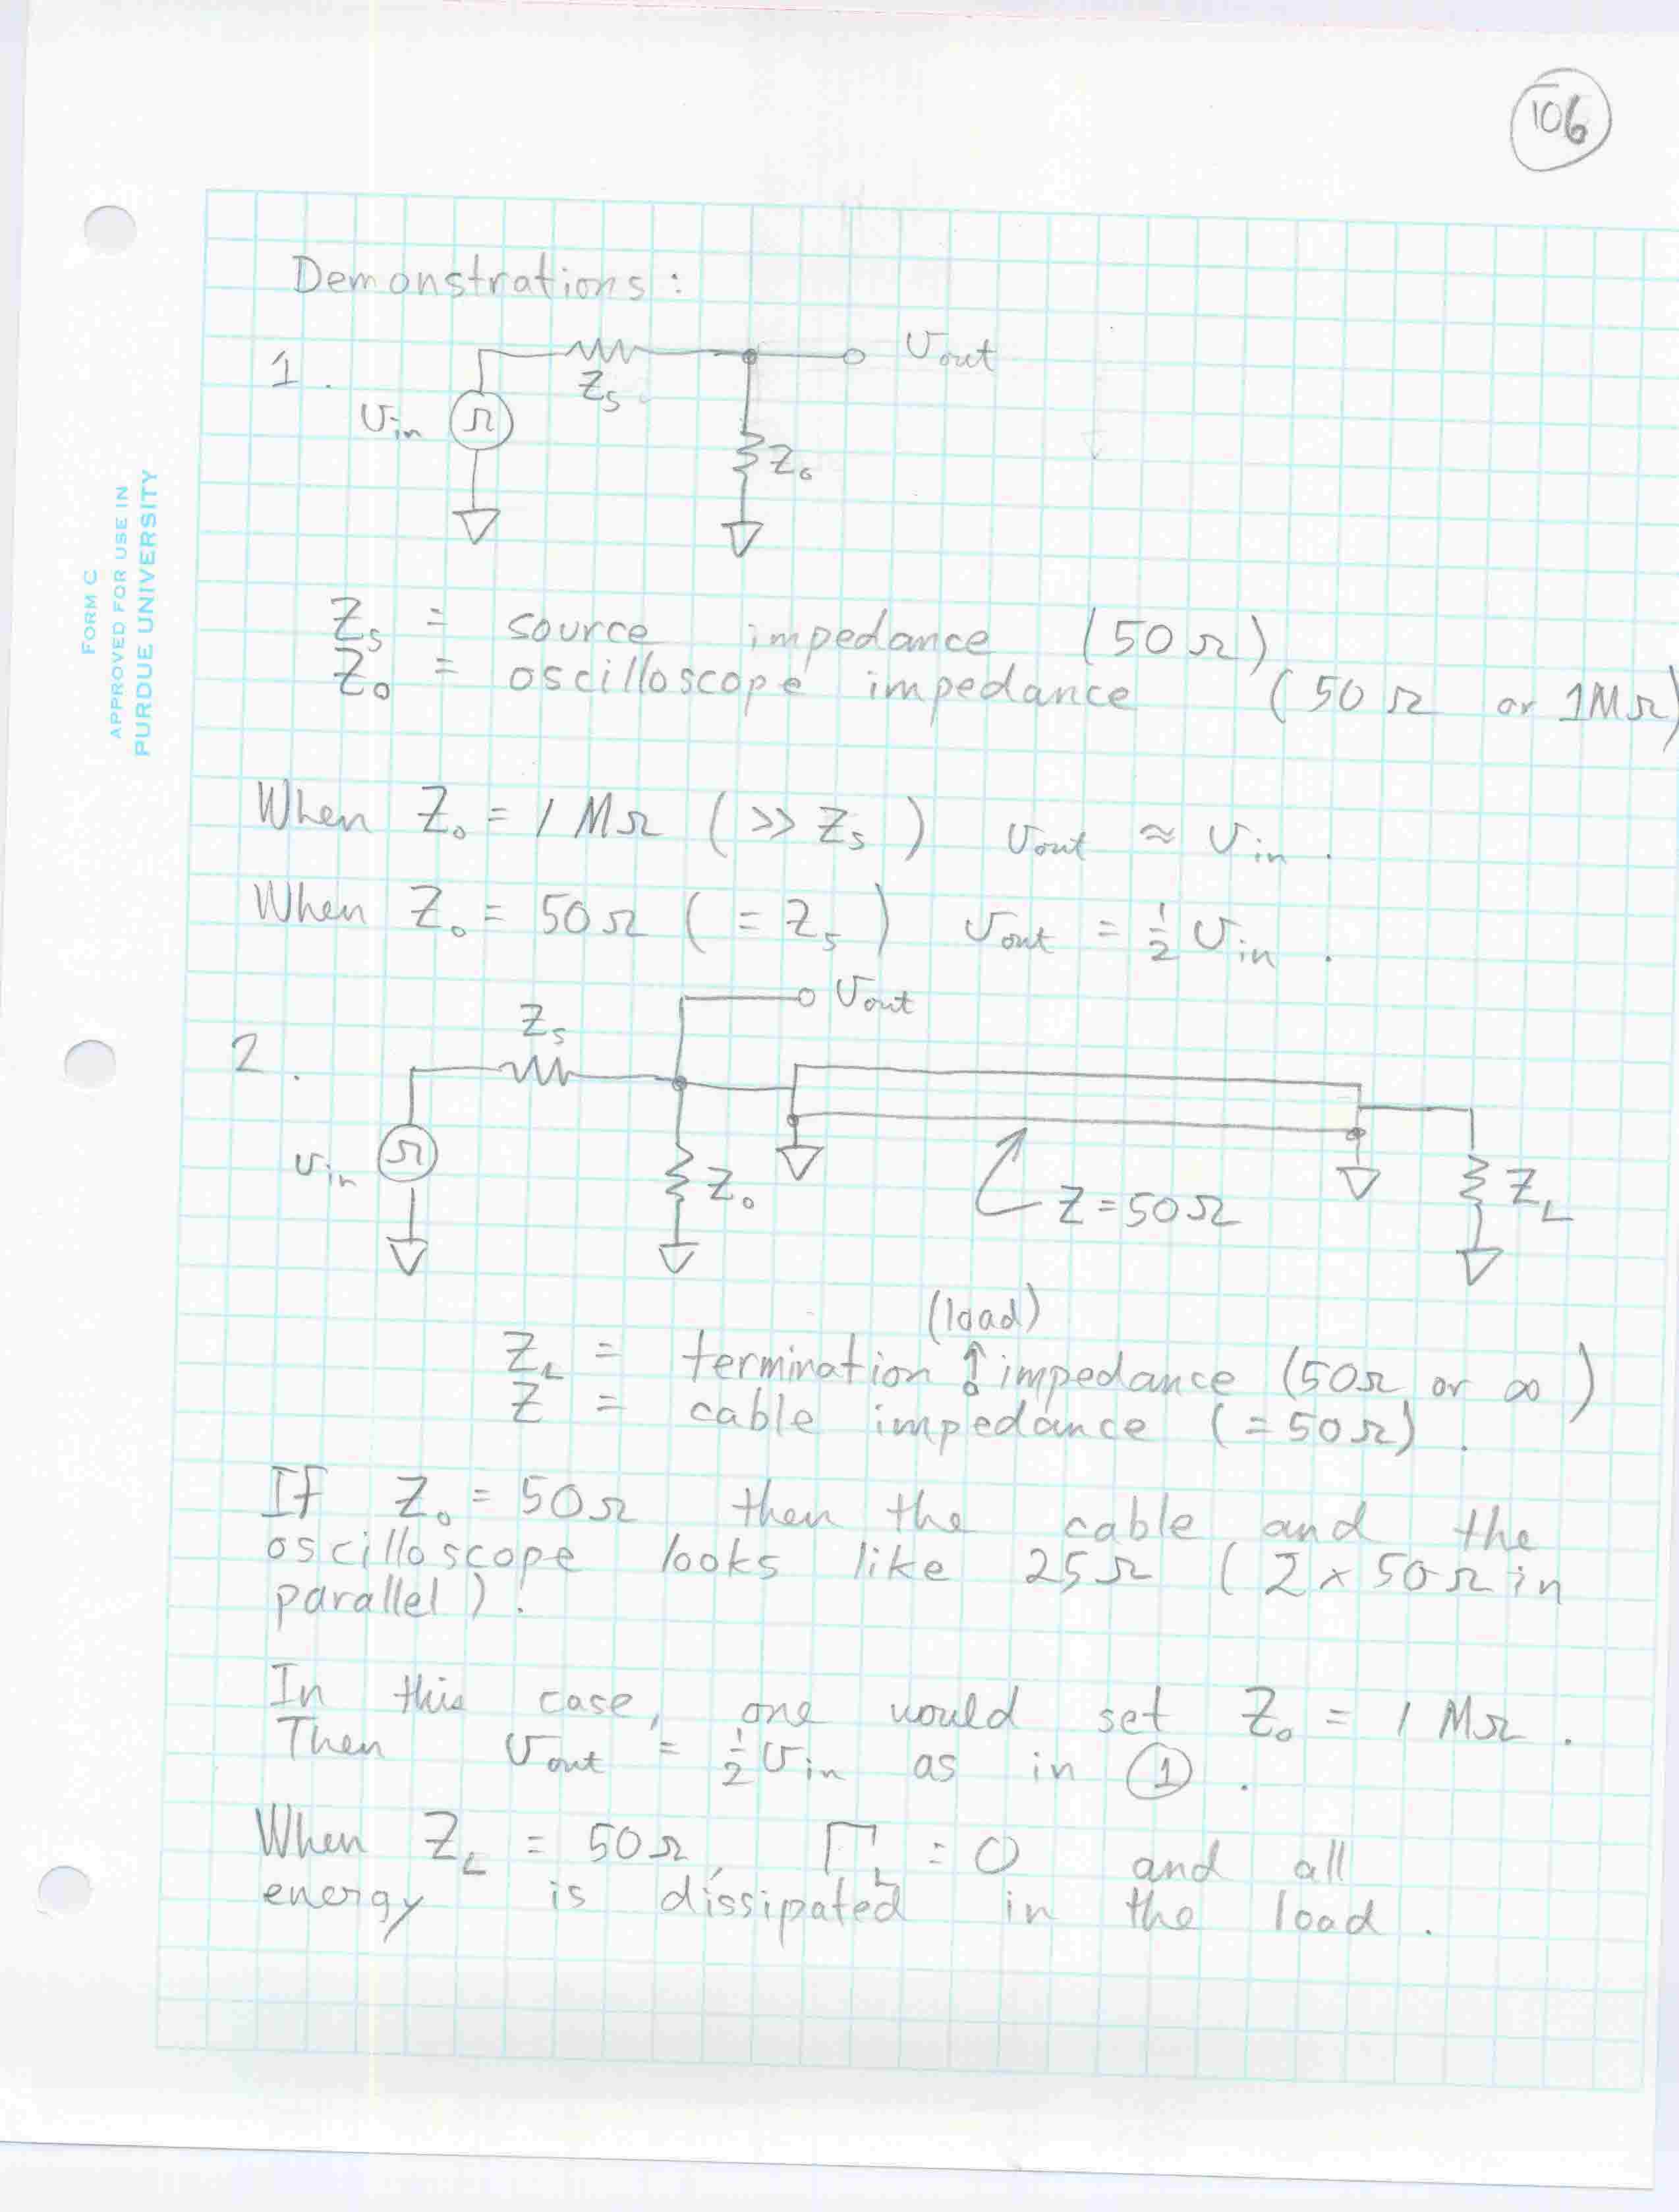 106
Demonstrations:
1.
Zs
Vout
Vin
Zo
FORM C
APPROVED FOR USE IN
PURDUE UNIVERSITY
Zs = source impedance (50Ω)
Zo = oscilloscope impedance (50Ω or 1MΩ)
When Zo = 1 MΩ (>> Zs) Vout ≈ Vin.
When Zo = 50Ω (= Zs) Vout = 1/2 Vin.
2.
Zs
Vout
Vin
Zo
Z = 50Ω
ZL
(load)
ZL = termination ↑ impedance (50Ω or ∞)
Z = cable impedance (= 50Ω).
If Zo = 50Ω then the cable and the
oscilloscope looks like 25Ω (2 × 50Ω in
parallel)!
In this case, one would set Zo = 1 MΩ.
Then Vout = 1/2 Vin as in ①.
When ZL = 50Ω, ΓL = 0 and all
energy is dissipated in the load.